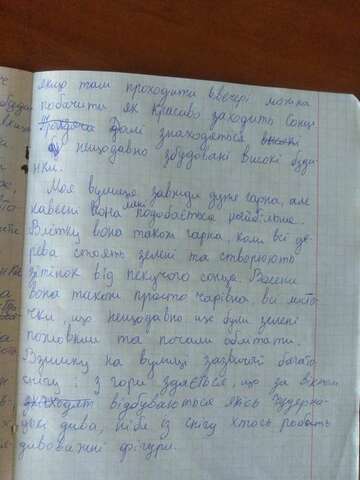 якщо там проходити ввечері можна
побачити як красиво заходить сонце
Пройдена Далі знаходяться високі
нещодавно збудовані високі буди
нки.
Моя вулиця завжди дуже гарна, але
навесні вона мені подобається найбільше.
Влітку вона також гарна, коли всі де-
рева стоять зелені та створюють
затінок від пекучого сонця. Восени
вона також просто чарівна, всі листо-
чки що нещодавно ще були зелені
пожовкли та почали облітати.
Взимку на вулиці зазвичай багато
снігу і з гори здається, що за вікном
знаходят відбуваються якісь чудерна-
цькі дива, ніби із снігу хтось робить
дивовижні фігури.